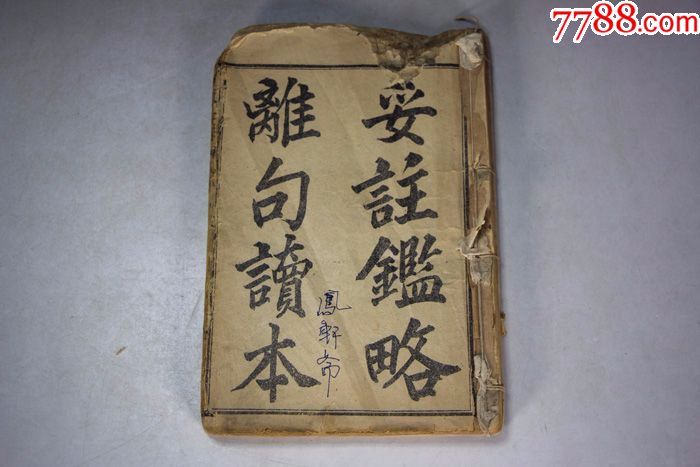 7788.com
妥註鑑略
離句讀本
鳳軒